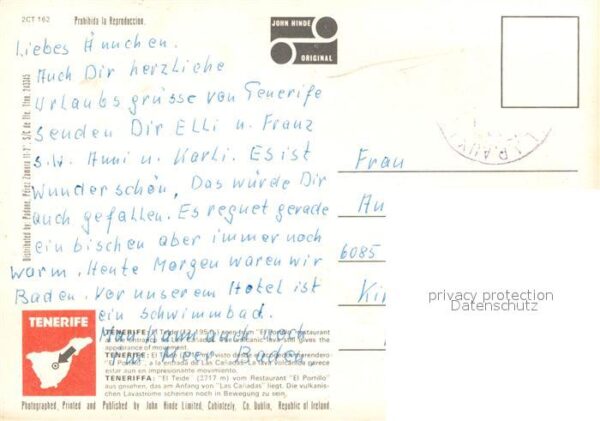 2CT 162
Prohibida la Reproduccion.
JOHN HINDE
ORIGINAL
Liebes Ännchen.
Auch Dir herzliche
Urlaubs grüsse von Tenerife
Senden Dir Elli u. Franz
s.w. Anni u. Karli. Es ist
Wunderschön, Das würde Dir
auch gefallen. Es regnet gerade
ein bischen aber immer noch
warm. Heute Morgen waren wir
Baden. Vor unserem Hotel ist
ein schwimmbad.
Man kann auch noch
im Meer Baden.
Frau
An
6085
Kir
privacy protection
Datenschutz
TENERIFE
TENERIFE: El Teide
seen from "El Portillo" Restaurant
lava gives the
appearance of movement.
TENERIFE: El
visto desde el merendero
"El Portillo", a la entrada de Las Cañadas. La lava volcánica parece
estar aun en impresionante movimiento.
TENERIFFA: "El Teide" (3717 m) vom Restaurant "El Portillo"
aus gesehen, das am Anfang von "Las Cañadas" liegt. Die vulkanis-
chen Lavaströme scheinen noch in Bewegung zu sein.
Photographed, Printed and Published by John Hinde Limited, Cabinteely, Co. Dublin, Republic of Ireland
Distributed by: Padane, Pérez Zamora
S/C de Tfe. Tfno. 243345